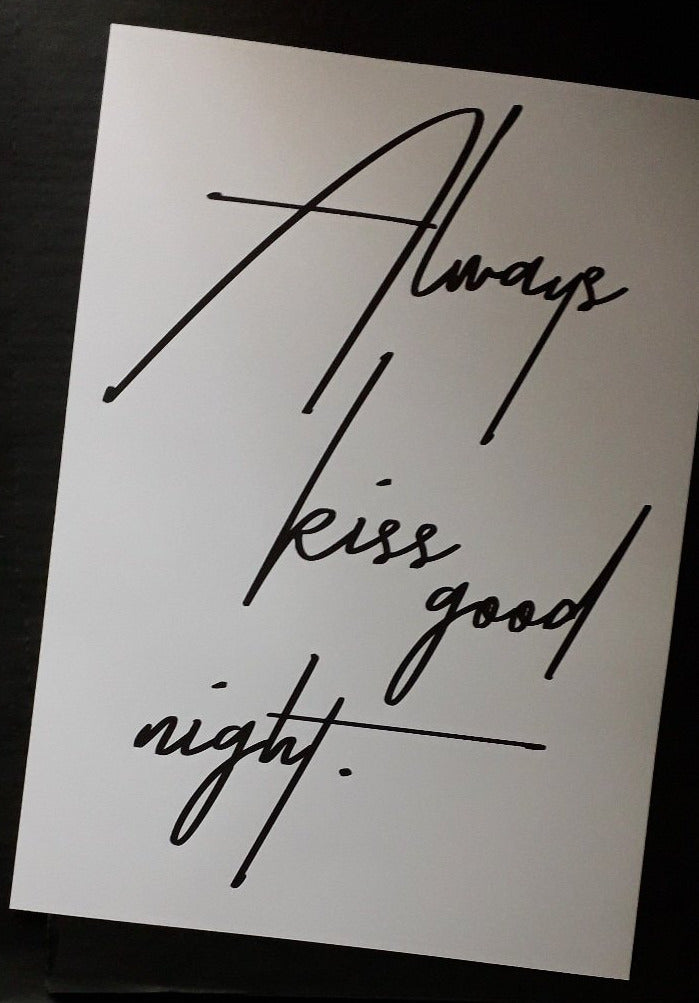 Always
kiss
good
night.